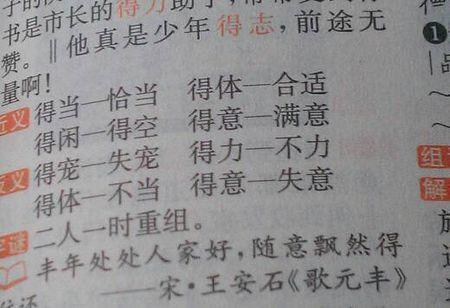 书是市长的得力助手,
赞。‖他真是少年得志,前途无
量啊!
近义 得当—恰当 得体—合适
得闲—得空 得意—满意
反义 得宠—失宠 得力—不力
得体—不当 得意—失意
字谜 二人一时重组。
丰年处处人家好,随意飘然得
——宋·王安石《歌元丰》
组
解